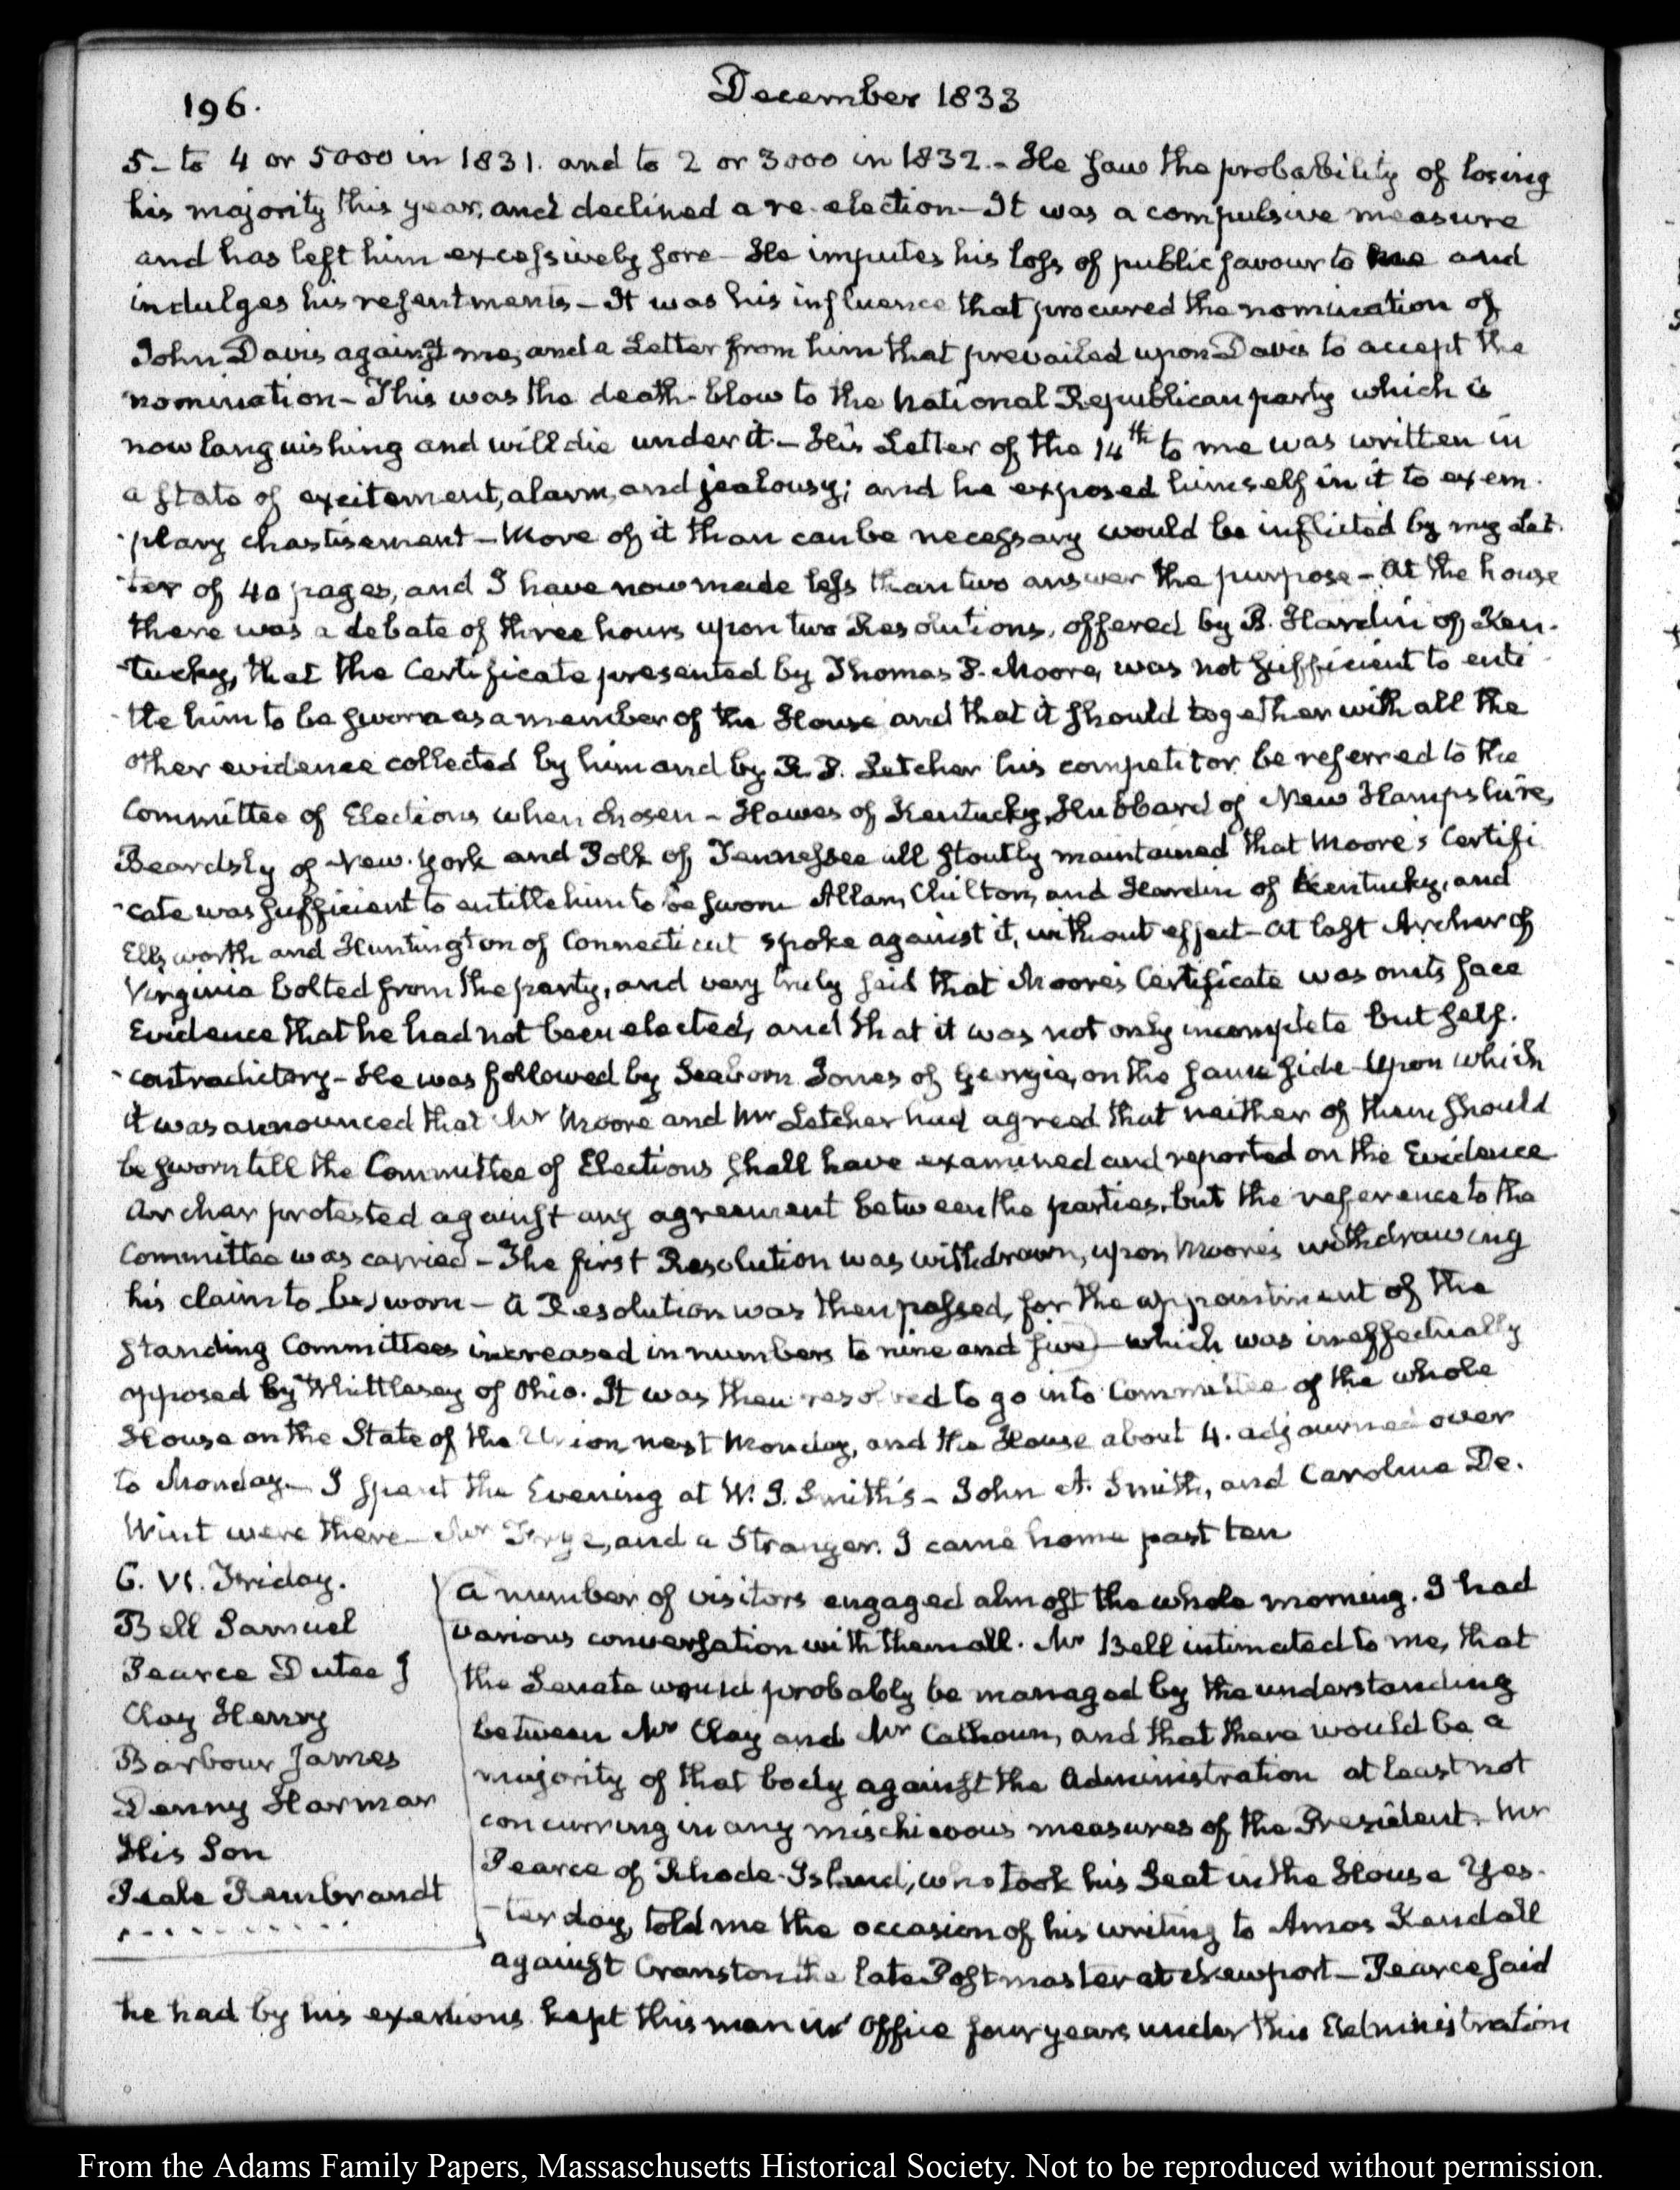 196.
December 1833
5- to 4 or 5000 in 1831. and to 2 or 3000 in 1832.- He saw the probability of losing
his majority this year, and declined a re-election- It was a compulsive measure
and has left him excessively sore- He imputes his loss of public favour to me and
indulges his resentments- It was his influence that procured the nomination of
John Davis against me, and a Letter from him that prevailed upon Davis to accept the
nomination- This was the death-blow to the National Republican party which is
now languishing and will die under it.- His Letter of the 14th to me was written in
a state of excitement, alarm, and jealousy; and he exposed himself in it to exem-
-plary chastisement- More of it than can be necessary would be inflicted by my Let-
-ter of 40 pages, and I have now made less than two answer the purpose- At the house
there was a debate of three hours upon two Resolutions, offered by B. Hardin of Ken-
-tucky, that the Certificate presented by Thomas P. Moore, was not sufficient to enti-
-tle him to be sworn as a member of the House and that it should together with all the
other evidence collected by him and by R. P. Letcher his competitor be referred to the
Committee of Elections when chosen- Hawes of Kentucky, Hubbard of New Hampshire,
Beardsly of New-York and Polk of Tennessee all stoutly maintained that Moore's Certifi-
-cate was sufficient to entitle him to be sworn Allan, Chilton, and Hardin of Kentucky, and
Ellsworth and Huntington of Connecticut spoke against it, without effect- At last Archer of
Virginia bolted from the party, and very truly said that Moore's Certificate was on its face
Evidence that he had not been elected, and that it was not only incomplete but self-
-contradictory- He was followed by Seaborn Jones of Georgia, on the same side- Upon which
it was announced that Mr Moore and Mr Letcher had agreed that neither of them should
be sworn till the Committee of Elections shall have examined and reported on the Evidence
Archer protested against any agreement between the parties, but the reference to the
Committee was carried- The first Resolution was withdrawn, upon Moore's withdrawing
his claim to be sworn- A Resolution was then passed, for the appointment of the
standing Committees increased in numbers to nine and five- which was ineffectually
opposed by Whittlesey of Ohio. It was then resolved to go into Committee of the whole
House on the State of the Union next Monday, and the House about 4. adjourned over
to Monday- I spent the Evening at W. S. Smith's- John A. Smith, and Caroline De-
Wint were there- Mr Frye, and a Stranger. I came home past ten
6. VI. Friday.
Bell Samuel
Pearce Dutee J
Clay Henry
Barbour James
Denny Harmar
His Son
Peale Rembrandt
A number of visitors engaged almost the whole morning. I had
various conversation with them all. Mr Bell intimated to me, that
the Senate would probably be managed by the understanding
between Mr Clay and Mr Calhoun, and that there would be a
majority of that body against the Administration at least not
concurring in any mischievous measures of the President. Mr
Pearce of Rhode-Island, who took his Seat in the House Yes-
-terday, told me the occasion of his writing to Amos Kendall
against Cranston the late Postmaster at Newport- Pearce said
he had by his exertions kept this man in Office four years under this Administration
From the Adams Family Papers, Massachusetts Historical Society. Not to be reproduced without permission.